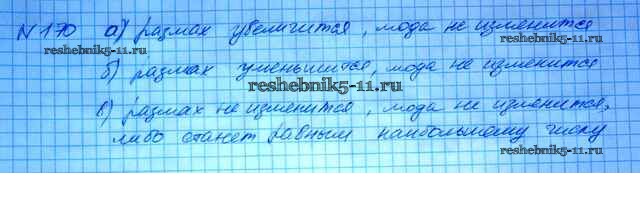 N 170 а) размах увеличится, мода не изменится
reshebnik5-11.ru reshebnik5-11.ru
б) размах уменьшится, мода не изменится
reshebnik5-11.ru
в) размах не изменится, мода не изменится,
либо станет равным наибольшему числу
reshebnik5-11.ru
reshebnik5-11.ru